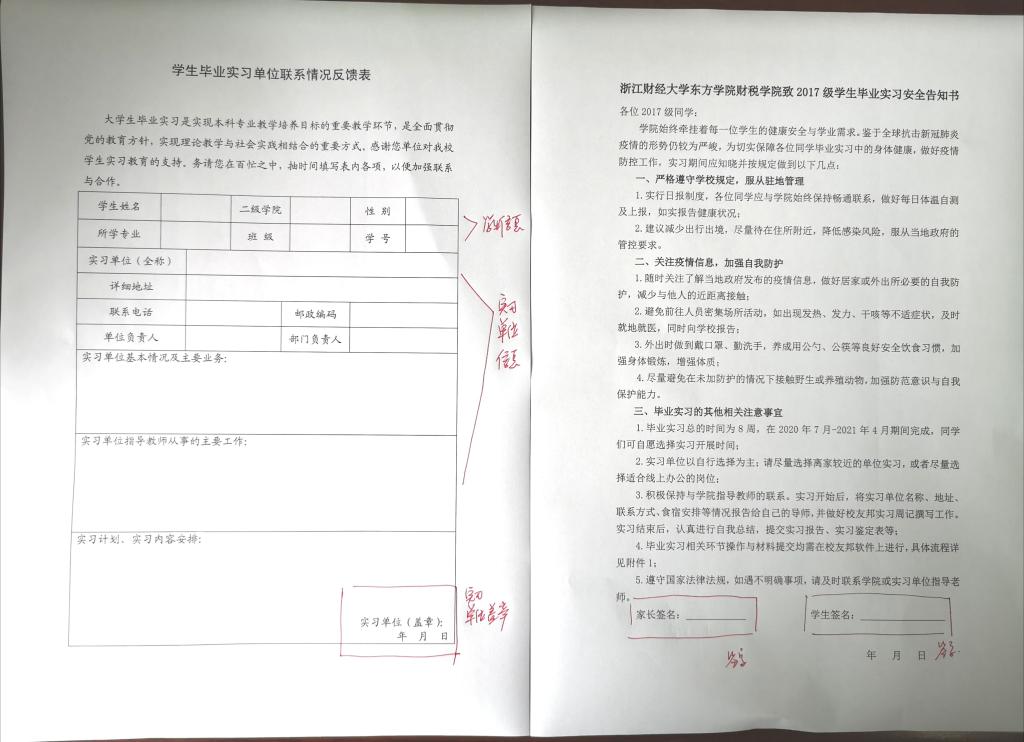 学生毕业实习单位联系情况反馈表
大学生毕业实习是实现本科专业教学培养目标的重要教学环节，是全面贯彻
党的教育方针，实现理论教学与社会实践相结合的重要方式。感谢您单位对我校
学生实习教育的支持。务请您在百忙之中，抽时间填写表内各项，以便加强联系
与合作。
学生姓名 二级学院 性 别
所学专业 班 级 学 号
实习单位（全称）
详细地址
联系电话 邮政编码
单位负责人 部门负责人
实习单位基本情况及主要业务：
实习单位指导教师从事的主要工作：
实习计划、实习内容安排：
实习单位（盖章）：
年 月 日
信息
实习
单位
信息
实习
单位盖章
浙江财经大学东方学院财税学院致 2017 级学生毕业实习安全告知书
各位 2017 级同学：
学院始终牵挂着每一位学生的健康安全与学业需求。鉴于全球抗击新冠肺炎
疫情的形势仍较为严峻，为切实保障各位同学毕业实习中的身体健康，做好疫情
防控工作，实习期间应知晓并按规定做到以下几点：
一、严格遵守学校规定，服从驻地管理
1.实行日报制度，各位同学应与学院始终保持畅通联系，做好每日体温自测
及上报，如实报告健康状况；
2.建议减少出行出境，尽量待在住所附近，降低感染风险，服从当地政府的
管控要求。
二、关注疫情信息，加强自我防护
1.随时关注了解当地政府发布的疫情信息，做好居家或外出所必要的自我防
护，减少与他人的近距离接触；
2.避免前往人员密集场所活动，如出现发热、发力、干咳等不适症状，及时
就地就医，同时向学校报告；
3.外出时做到戴口罩、勤洗手，养成用公勺、公筷等良好安全饮食习惯，加
强身体锻炼，增强体质；
4.尽量避免在未加防护的情况下接触野生或养殖动物，加强防范意识与自我
保护能力。
三、毕业实习的其他相关注意事宜
1.毕业实习总的时间为 8 周，在 2020 年 7 月-2021 年 4 月期间完成，同学
们可自愿选择实习开展时间；
2.实习单位以自行选择为主；请尽量选择离家较近的单位实习，或者尽量选
择适合线上办公的岗位；
3.积极保持与学院指导教师的联系。实习开始后，将实习单位名称、地址、
联系方式、食宿安排等情况报告给自己的导师，并做好校友邦实习周记撰写工作。
实习结束后，认真进行自我总结，提交实习报告、实习鉴定表等；
4.毕业实习相关环节操作与材料提交均需在校友邦软件上进行，具体流程详
见附件 1；
5.遵守国家法律法规，如遇不明确事项，请及时联系学院或实习单位指导老
师。
家长签名： 学生签名：
年 月 日